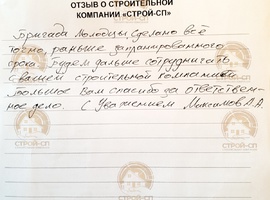 ОТЗЫВ О СТРОИТЕЛЬНОЙ
КОМПАНИИ «СТРОЙ-СП»
Бригада Молодцы сделано всё
точно, раньше запланированного
срока. Будем дальше сотрудничать
с вашей строительной компанией
Большое Вам спасибо за ответствен-
ное дело. С Уважением Максимов А.А.
СТРОЙ-СП
СТРОЙ-СП